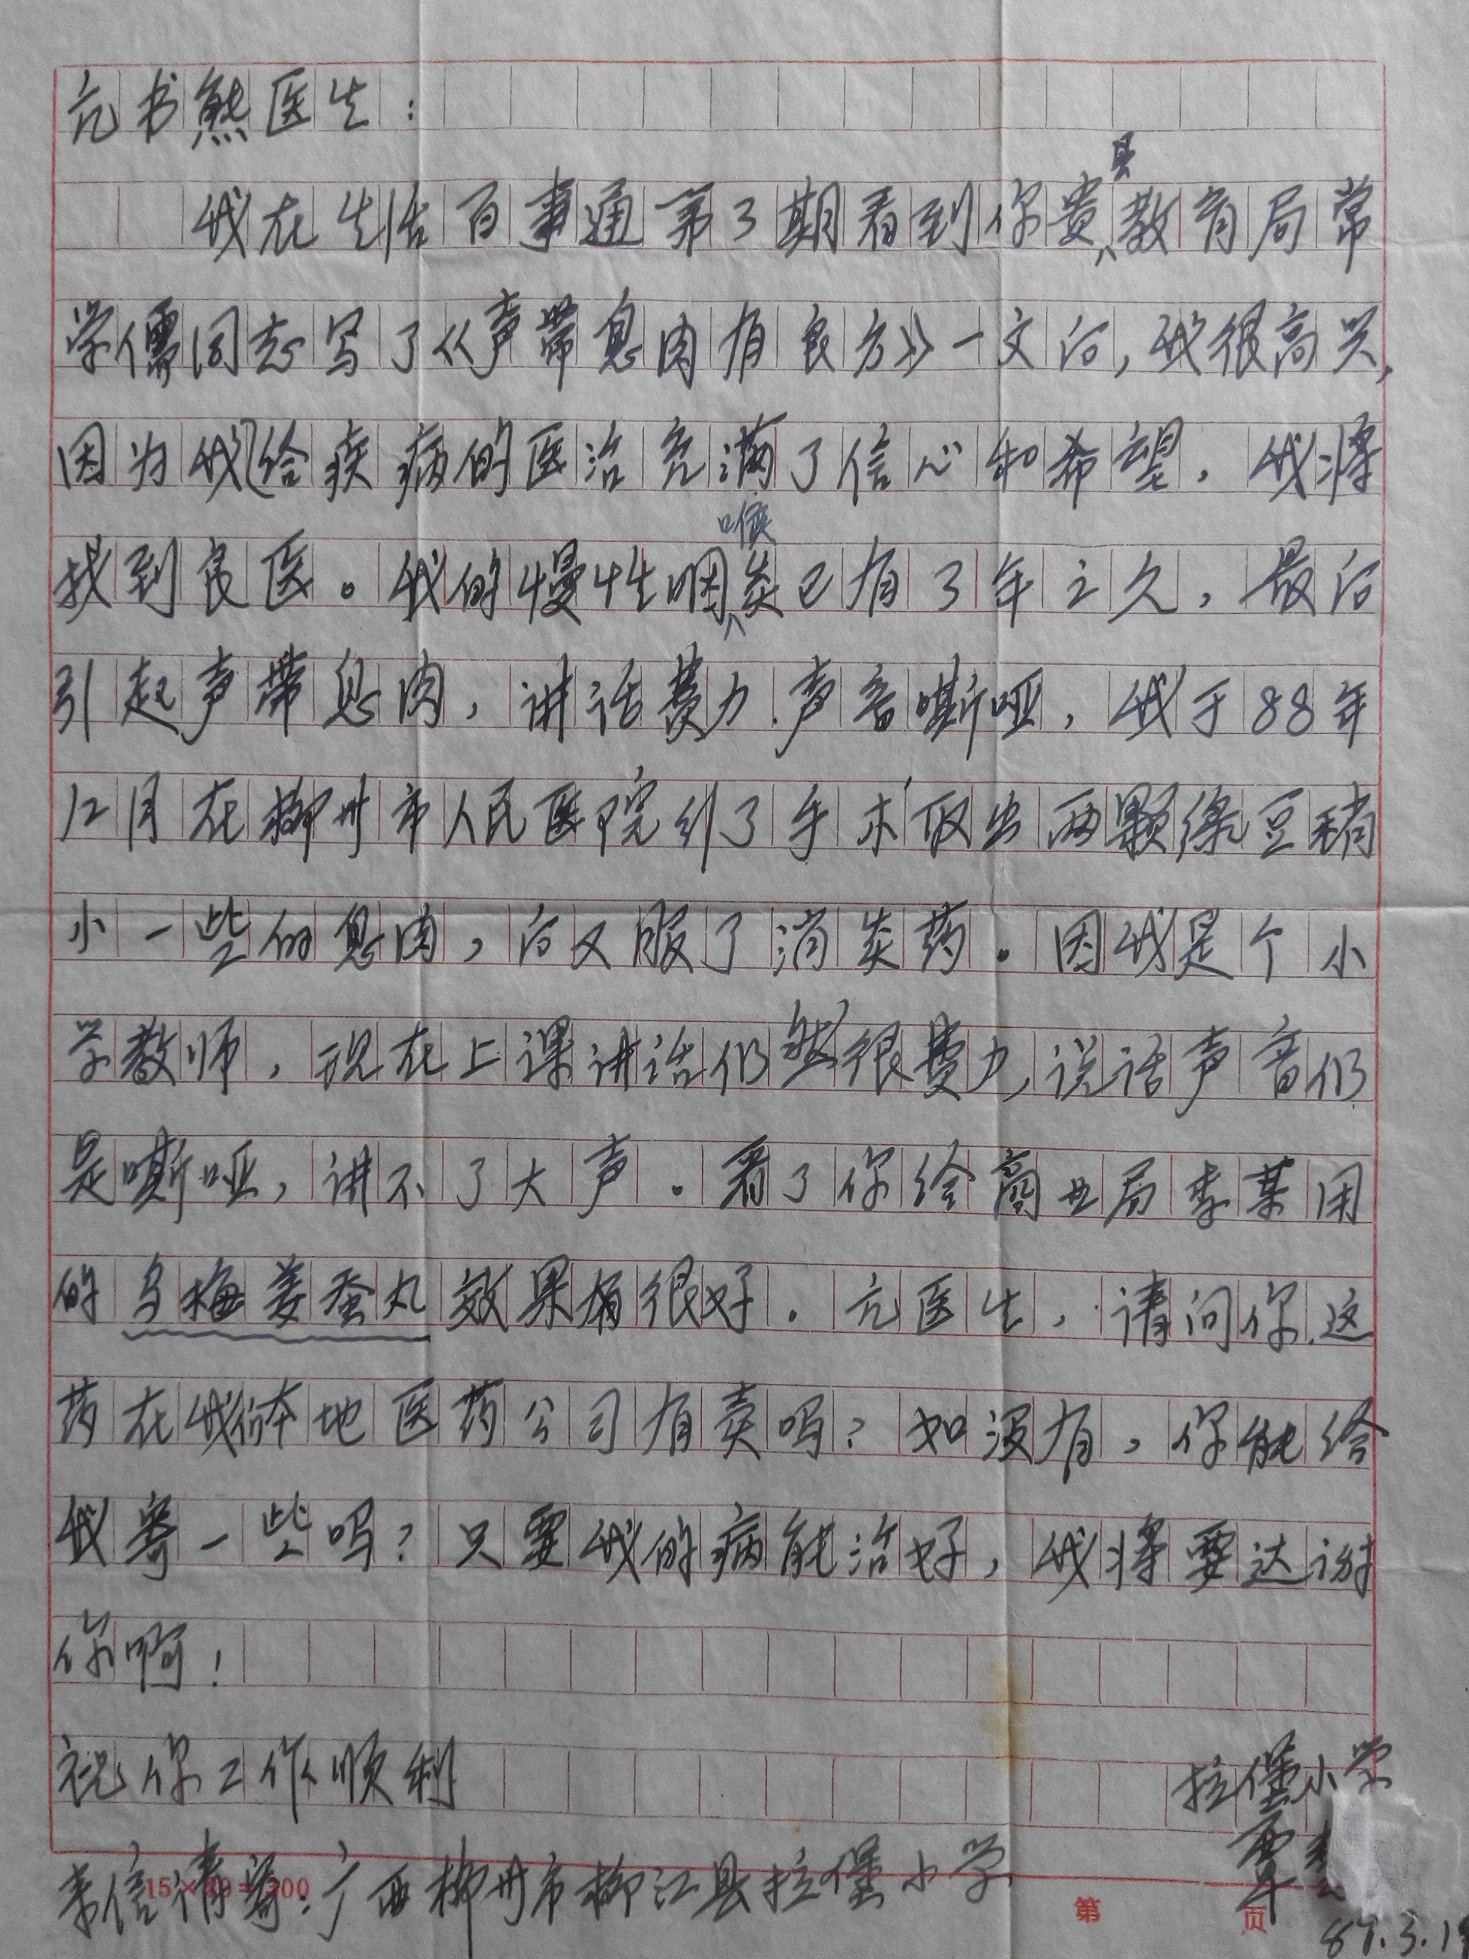 亢书熊医生：
我在生活百事通第3期看到你贵县教育局常
学儒同志写了《声带息肉有良方》一文后，我很高兴，
因为我给疾病的医治充满了信心和希望，我将
找到良医。我的慢性咽喉炎已有3年之久，最后
引起声带息肉，讲话费力、声音嘶哑，我于88年
12月在柳州市人民医院做了手术取出两颗绿豆稍
小一些的息肉，后又服了消炎药。因我是个小
学教师，现在上课讲话仍然很费力，说话声音仍
是嘶哑，讲不了大声。看了你给商业局李某用
的乌梅姜蚕丸效果有很好。亢医生，请问你，这
药在我们本地医药公司有卖吗？如没有，你能给
我寄一些吗？只要我的病能治好，我将要达谢
你啊！
祝你工作顺利
拉堡小学
覃
来信请寄：广西柳州市柳江县拉堡小学
15×20=300
第 页
89.3.1